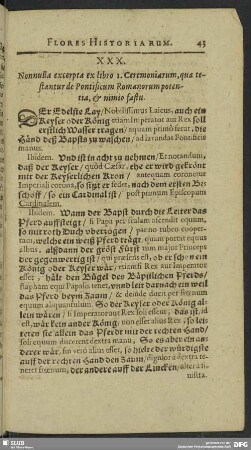 FLORES HISTORIARUM. 43
XXX.
Nonnulla excerpta ex libro 1. Ceremoniarum, quæ te-
stantur de Pontificum Romanorum poten-
tia, & nimio fastu.
DEr Edelste Lay/ Nobilissimus Laicus, auch ein
Keyser oder König/ etiam Imperator aut Rex soll
erstlich Wasser tragen/ aquam primò ferat, die
Händ deß Bapsts zu waschen/ ad lavandas Pontificis
manus.
Ibidem. Und ist in acht zu nehmen/ Et notandum,
daß der Keyser/ quod Cæsar, ehe er wird gekrönt
mit der Keyserlichen Kron/ antequam coronetur
Imperiali corona, so sitzt er sedet, nach dem ersten Bi-
schoff/ so ein Cardinal ist/ post primum Episcopum
Cardinalem.
Ibidem. Wann der Bapst durch die Leiter das
Pferd auffsteigt/ si Papa per scalam ascendit equum,
so mit roth Tuch uberzogen/ panno rubeo cooper-
tam, welche ein weiß Pferd trägt/ quam portet equus
albus, alßdann der gröst Fürst tum major Princeps
der gegenwertig ist/ qui præsens est, ob er schon ein
König oder Keyser wär/ etiamsi Rex aut Imperator
esset, hält den Bügel deß Bäpstlichen Pferds/
stapham equi Papalis tenet, und leit darnach ein weil
das Pferd beym Zaum/ & deinde ducit per frenum
equum aliquantulum. So der Keyser oder König al-
lein wären/ si Imperator aut Rex soli essent, das ist, id
est, wär kein ander König/ non esset alius Rex, so lei-
teten sie allein das Pferdt mit der rechten Hand/
soli equum ducerent dextra manu, So es aber ein an-
derer wär, sin verò alius esset, so hielte der würdigste
auff der rechten Hand den Zaum/ dignior à dextra te-
neret frenum, der andere auff der Lincken, alter à si-
nistra.
SLUB